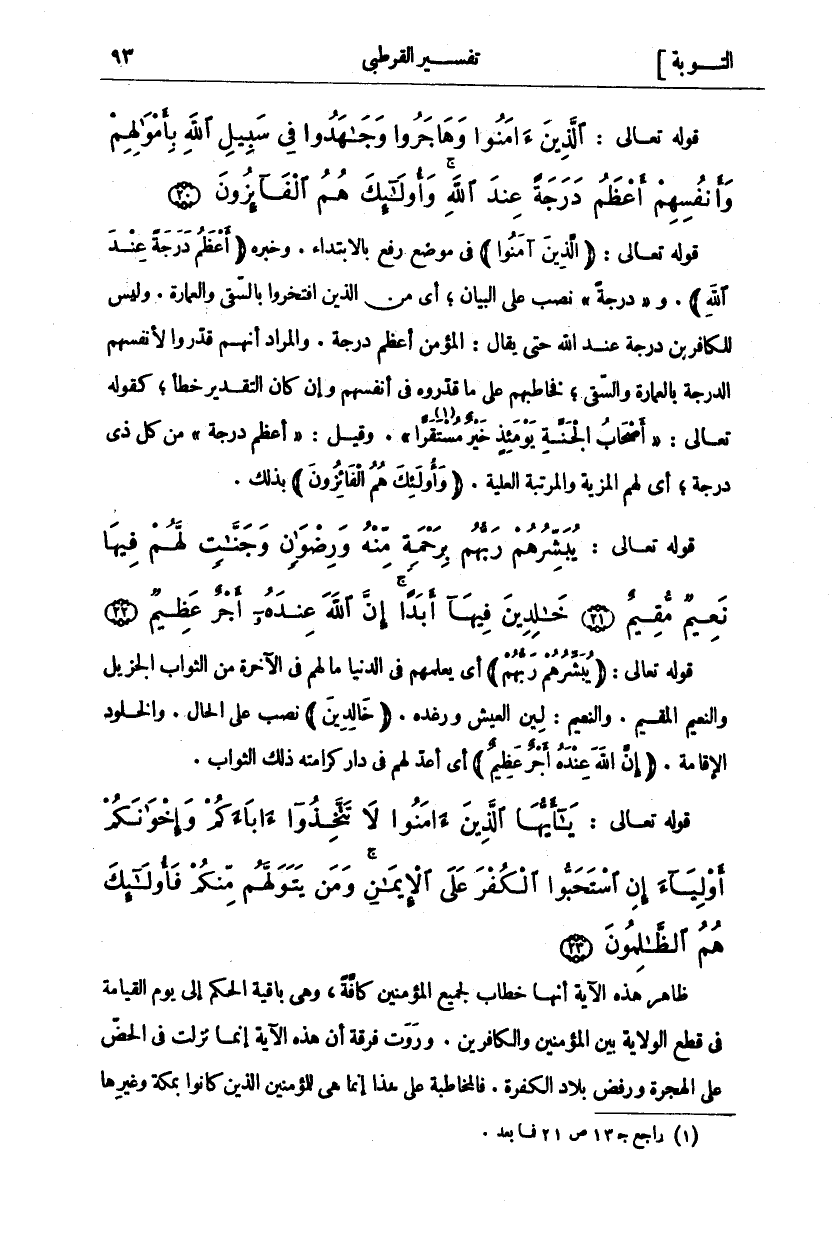 التـــوبة ] تفســـير القرطبى ٩٣
قوله تعـالى : ٱلَّذِينَ ءَامَنُوا وَهَاجَرُوا وَجَـٰهَدُوا فِى سَبِيلِ ٱللَّهِ بِأَمْوَٰلِهِمْ
وَأَنفُسِهِمْ أَعْظَمُ دَرَجَةً عِندَ ٱللَّهِ ۚ وَأُولَـٰٓئِكَ هُمُ ٱلْفَآئِزُونَ ﴿٢٠﴾
قوله تعـالى : ﴿ الَّذِينَ آمَنُوا ﴾ فى موضع رفع بالابتداء . وخبره ﴿ أَعْظَمُ دَرَجَةً عِنْـدَ
اللَّهِ ﴾ . و « درجةً » نصب على البيان ؛ أى من الذين افتخروا بالسّقى والعمارة . وليس
للكافرين درجة عنـد الله حتى يقال : المؤمن أعظم درجة . والمراد أنهـم قدّروا لأنفسهم
الدرجة بالعمارة والسّقى ؛ فخاطبهم على ما قدّروه فى أنفسهم وإن كان التقـدير خطأ ؛ كقوله
تعـالى : « أَصْحَابُ الْجَنَّـةِ يَوْمَئِذٍ خَيْرٌ مُسْتَقَرًّا (١) » . وقيـل : « أعظم درجة » من كل ذى
درجة ؛ أى لهم المزية والمرتبة العلية . ﴿ وَأُولَئِكَ هُمُ الْفَائِزُونَ ﴾ بذلك .
قوله تعـالى : يُبَشِّرُهُمْ رَبُّهُم بِرَحْمَةٍ مِّنْهُ وَرِضْوَٰنٍ وَجَنَّـٰتٍ لَّهُمْ فِيهَا
نَعِيمٌ مُّقِيمٌ ﴿٢١﴾ خَـٰلِدِينَ فِيهَآ أَبَدًا ۚ إِنَّ ٱللَّهَ عِندَهُۥٓ أَجْرٌ عَظِيمٌ ﴿٢٢﴾
قوله تعالى : ﴿ يُبَشِّرُهُمْ رَبُّهُمْ ﴾ أى يعلمهم فى الدنيا ما لهم فى الآخرة من الثواب الجزيل
والنعيم المقـيم . والنعيم : لِين العيش ورغده . ﴿ خَالِدِينَ ﴾ نصب على الحال . والخلـود
الإقامة . ﴿ إِنَّ اللَّهَ عِنْدَهُ أَجْرٌ عَظِيمٌ ﴾ أى أعدّ لهم فى دار كرامته ذلك الثواب .
قوله تعـالى : يَـٰٓأَيُّهَا ٱلَّذِينَ ءَامَنُوا لَا تَتَّخِذُوٓا ءَابَآءَكُمْ وَإِخْوَٰنَكُمْ
أَوْلِيَآءَ إِنِ ٱسْتَحَبُّوا ٱلْكُفْرَ عَلَى ٱلْإِيمَـٰنِ ۚ وَمَن يَتَوَلَّهُم مِّنكُمْ فَأُولَـٰٓئِكَ
هُمُ ٱلظَّـٰلِمُونَ ﴿٢٣﴾
ظاهر هذه الآية أنهـا خطاب لجميع المؤمنين كافَّةً ، وهى باقية الحكم إلى يوم القيامة
فى قطع الولاية بين المؤمنين والكافرين . ورَوَت فرقة أن هذه الآية إنمـا نزلت فى الحضّ
على الهجرة ورفض بلاد الكفرة . فالمخاطبة على هذا إنما هى للمؤمنين الذين كانوا بمكة وغيرِها
(١) راجع جـ ١٣ ص ٢١ فـا بعد .